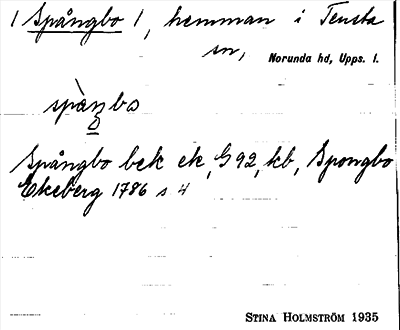 / Spångbo /, hemman i Tensta
sn, Norunda hd, Upps. l.
spàŋbo
Spångbo bek ek, G 92, kb, Spongbo
Ekeberg 1786 s 4
STINA HOLMSTRÖM 1935